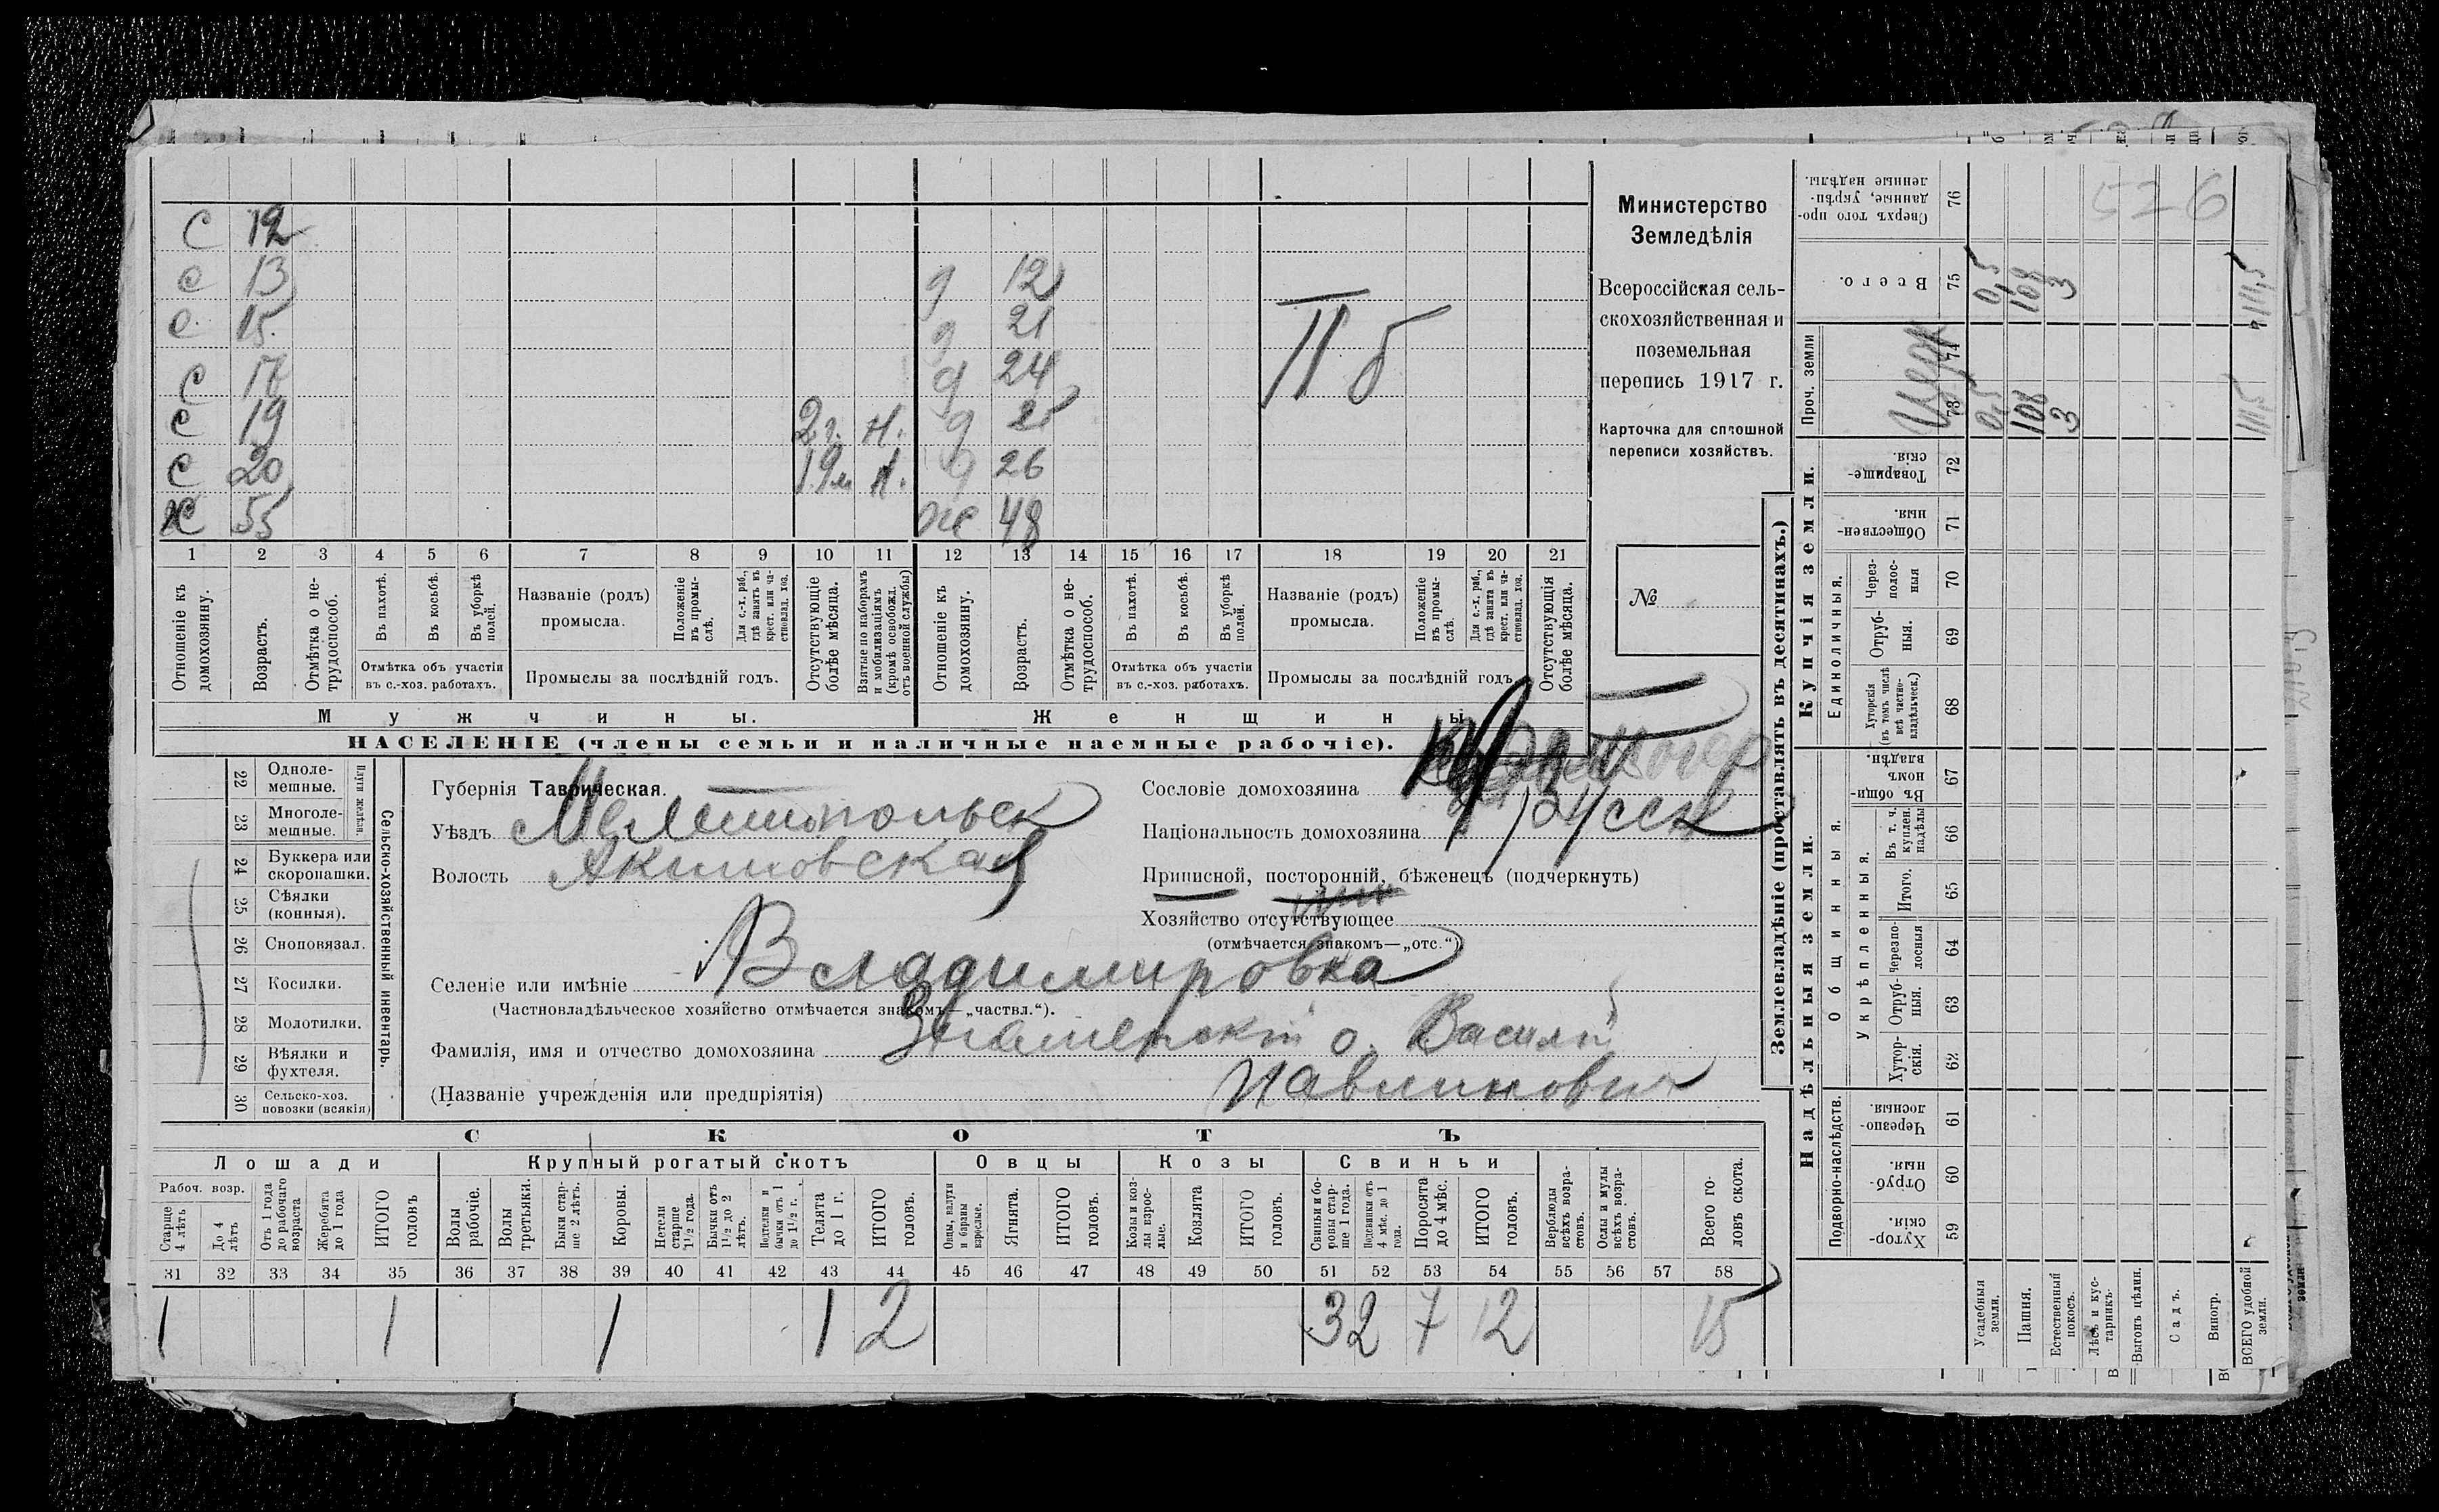 С 12
с 13 д 12
с 15 д 21
с 17 д 24
с 19 2 г. Н. д 25
с 20 19 м Н. д 26
Х 55 Ж 48
П б
1 2 3 4 5 6 7 8 9 10 11 12 13 14 15 16 17 18 19 20 21
Отношеніе къ домохозяину.
Возрастъ.
Отмѣтка о не-
трудоспособ.
Въ пахотѣ.
Въ косьбѣ.
Въ уборкѣ полей.
Отмѣтка объ участіи
въ с.-хоз. работахъ.
Названіе (родъ)
промысла.
Положеніе въ промы-
слѣ.
Для с.-х. раб., гдѣ занятъ въ крест. или ча-
стновлад. хоз.
Промыслы за послѣдній годъ.
Отсутствующіе болѣе мѣсяца.
Взятые по наборамъ и мобилизаціямъ (кромѣ освобожд. отъ военной службы)
Отношеніе къ домохозяину.
Возрастъ.
Отмѣтка о не-
трудоспособ.
Въ пахотѣ.
Въ косьбѣ.
Въ уборкѣ полей.
Отмѣтка объ участіи
въ с.-хоз. работахъ.
Названіе (родъ)
промысла.
Положеніе въ промы-
слѣ.
Для с.-х. раб., гдѣ занята въ крест. или ча-
стновлад. хоз.
Промыслы за послѣдній годъ.
Отсутствующія болѣе мѣсяца.
Мужчины.
Женщины
НАСЕЛЕНІЕ (члены семьи и наличные наемные рабочіе).
Министерство
Земледѣлія
Всероссійская сель-
скохозяйственная и
поземельная
перепись 1917 г.
Карточка для сплошной
переписи хозяйствъ.
№
22 Одноле-
мешные.
23 Многоле-
мешные.
Плуги желѣзн.
24 Буккера или
скоропашки.
25 Сѣялки
(конныя).
26 Сноповязал.
27 Косилки.
28 Молотилки.
29 Вѣялки и
фухтеля.
30 Сельско-хоз.
повозки (всякія)
Сельско-хозяйственный инвентарь.
Губернія Таврическая.
Уѣздъ Мелитопольск
Волость Акимовская
Селеніе или имѣніе Владимировка
(Частновладѣльческое хозяйство отмѣчается знакомъ—„частвл.“).
Фамилія, имя и отчество домохозяина Знаменскій о. Василій
(Названіе учрежденія или предпріятія) Павлинович
Сословіе домохозяина
Національность домохозяина русск
Приписной, посторонній, бѣженецъ (подчеркнуть)
Хозяйство отсутствующее
(отмѣчается знакомъ—„отс.“)
СКОТЪ
Лошади Крупный рогатый скотъ Овцы Козы Свиньи
Рабоч. возр.
Старше 4 лѣтъ
До 4 лѣтъ
Отъ 1 года до рабочаго возраста
Жеребята до 1 года
ИТОГО головъ
Волы рабочіе.
Волы третьяки.
Быки стар-
ше 2 лѣтъ.
Коровы.
Нетели старше 1½ года.
Бычки отъ 1½ до 2 лѣтъ.
Подтелки и бычки отъ 1 до 1½ г.
Телята до 1 г.
ИТОГО головъ.
Овцы, валухи и бараны взрослые.
Ягнята.
ИТОГО головъ.
Козы и коз-
лы взрос-
лые.
Козлята
ИТОГО головъ.
Свиньи и бо-
ровы стар-
ше 1 года.
Подсвинки отъ 4 мѣс. до 1 года.
Поросята до 4 мѣс.
ИТОГО головъ.
Верблюды всѣхъ возра-
стовъ.
Ослы и мулы всѣхъ возра-
стовъ.
Всего го-
ловъ скота.
31 32 33 34 35 36 37 38 39 40 41 42 43 44 45 46 47 48 49 50 51 52 53 54 55 56 57 58
1 1 1 1 2 3 2 7 12 15
Землевладѣніе (проставлять въ десятинахъ.)
Надѣльныя земли.
Купчія земли.
Проч. земли
Подворно-наслѣдств.
Общинныя.
Укрѣпленныя.
Единоличныя.
Хутор-
скія. 59
Отруб-
ныя. 60
Черезпо-
лосныя. 61
Хутор-
скія. 62
Отруб-
ныя. 63
Черезпо-
лосныя 64
Итого. 65
Въ т. ч. куплен. надѣлы 66
Въ общин-
номъ владѣн. 67
Хуторскія (въ томъ числѣ всѣ частно-
владѣльческ.) 68
Отруб-
ныя. 69
Через-
полос-
ныя 70
Обществен-
ныя. 71
Товарище-
скія. 72
73
74
Всего. 75
Сверхъ того про-
данные, укрѣп-
ленные надѣлы. 76
526
Церк
Усадебныя земли. 0,5 0,5
Пашня. 108 108
Естественный покосъ. 3 3
Лѣсъ и кус-
тарникъ.
Выгонъ цѣлин.
Садъ.
Виногр.
ВСЕГО удобной земли. 111,5 111,5